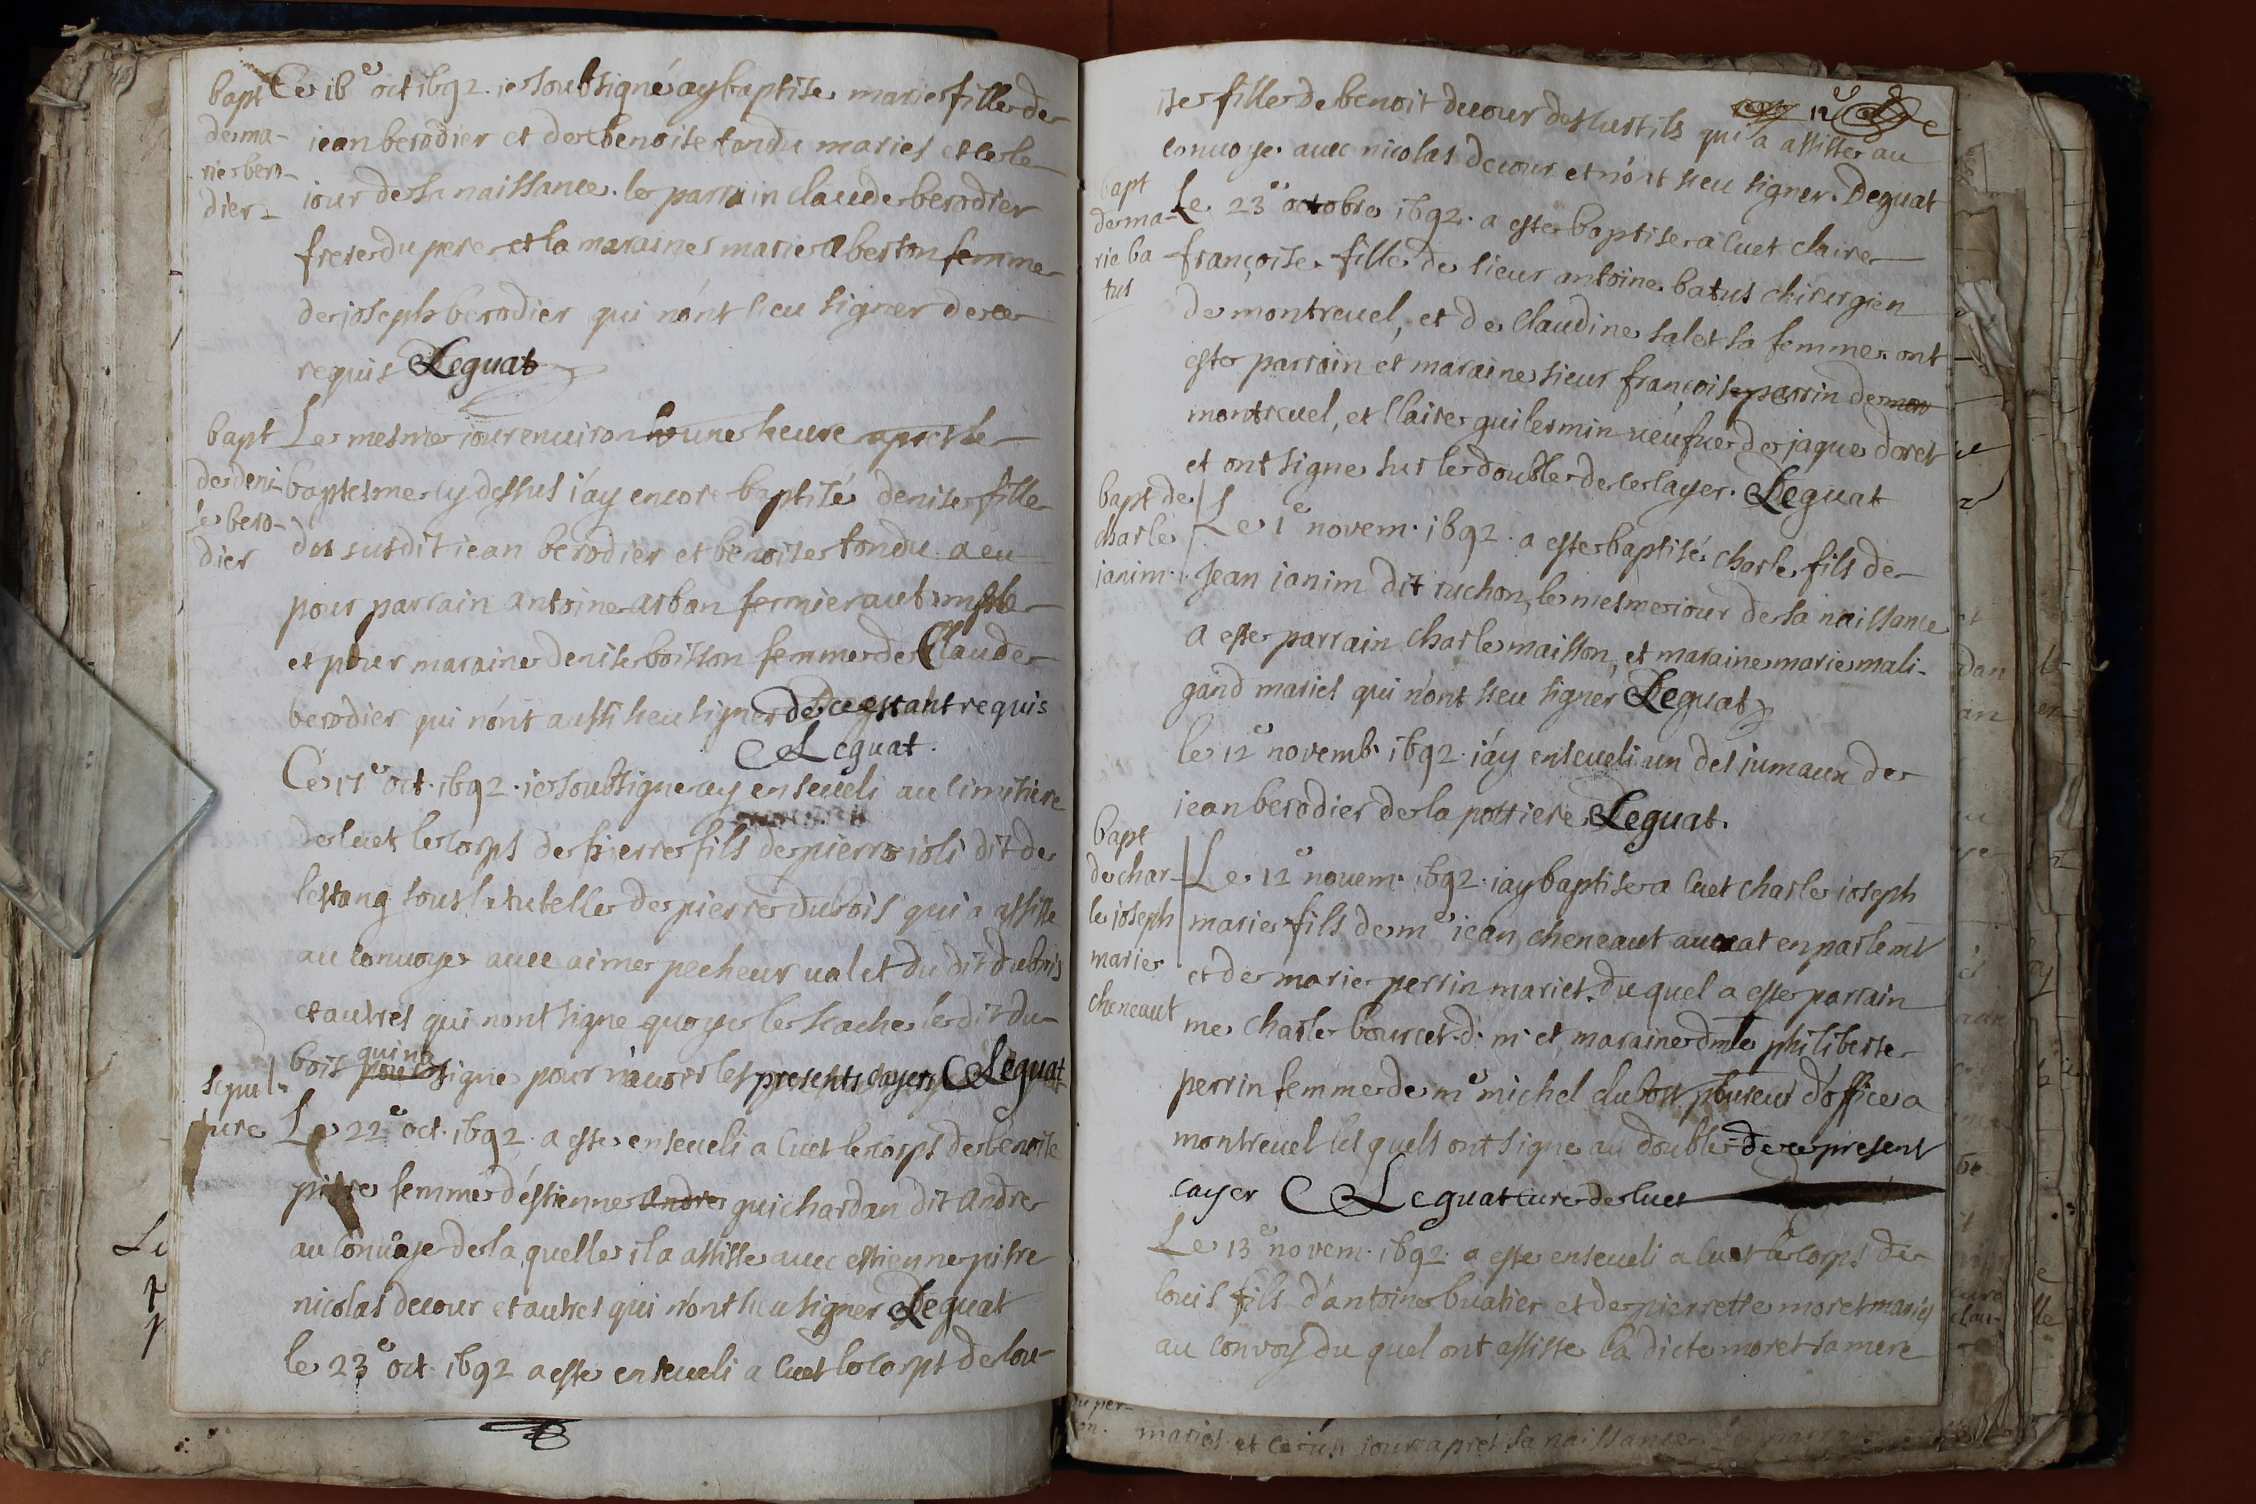 bapt
de ma-
rie bero-
dier
Ce 16e oct 1692. ie soubsigné ay baptise marie fille de
iean berodier et de benoite tondu maries et ce le
iour de sa naissance. le parrain claude berodier
frere du pere et la maraine marie aberton femme
de joseph berodier qui n'ont sceu signer de ce
requis Deguat
bapt
de deni-
se bero-
dier
Le mesme iour enuiron une heure apres le
baptesme cy dessus i'ay encore baptisé denise fille
du susdit iean berodier et benoite tondu a eu
pour parrain antoine arban fermier aut
et pour maraine denise boisson femme de Claude
berodier qui n'ont aussi sceu signer de ce estant requis
Deguat.
Ce 17e oct. 1692. ie soubsigne ay enseueli au cimitiere
de cuet le corps de pierre fils de pierre ioli dit de
lestang sous la tutelle de pierre dubois qui a assiste
au conuoye auec aime pecheur ualet du dit dubois
et autres qui n'ont signe quoye le sache le dit du-
bois qui na signe pour n'auoir les presents cayers Deguat
sepul-
ture
Le 22e oct. 1692. a este enseueli a Cuet le corps de benoite
pitre femme d'estienne andre guichardan dit andre
au conuoye de la quelle il a assiste auec estienne pitre
nicolas decour et autres qui n'ont sceu signer Deguat
le 23e oct. 1692 a este enseueli a Cuet le corps de lou-
12e
ise fille de benoit decour des lustils qui a assiste au
conuoye auec nicolas decour et n'ont sceu signer. Deguat
bapt
de ma-
rie ba-
tus
Le 23e octobre 1692. a este baptise a Cuet claire
françoise fille de sieur antoine batus chirurgien
de montreuel, et de Claudine salet sa femme. ont
este parrain et maraine sieur françois perrin de mon
montreuel, et Claire guilermin ueufue de jaque doret
et ont signe sur le double de ce cayer. Deguat
bapt de
charle
janim.
Le 1e novem. 1692. a este baptisé charle fils de
Jean janim dit ruchon, le mesme iour de sa naissance
a este parrain Charle maisson, et maraine marie mali-
gand maries qui n'ont sceu signer Deguat
le 12e novemb. 1692. i'ay enseueli un des jumaux de
jean berodier de la pottiere Deguat.
bapt
de char-
le joseph
marie
cheneaut
Le 12e nouem. 1692. iay baptise a Cuet charle ioseph
marie fils de me iean cheneaut auocat en parlemt
et de marie perrin maries. du quel a este parrain
me charle bourcet. d. m et maraine dmle philiberte
perrin femme de me michel dubost procureur d'office a
montreuel les quels ont signe au double de ce present
cayer Deguat cure de cuet
Le 13e novem. 1692. a este enseueli a Cuet le corps de
louis fils d'antoine buatier et de pierrette moret maries
au convoy du quel ont assiste la dicte moret sa mere
maries et ce un iour apres sa naissance